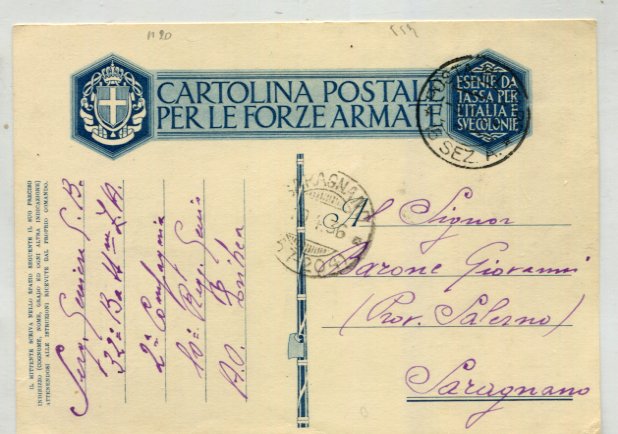 CARTOLINA POSTALE
PER LE FORZE ARMATE
ESENTE DA
TASSA PER
L'ITALIA E
SUE COLONIE
POSTA
SEZ. A.
IL MITTENTE SCRIVA NELLO SPAZIO SEGUENTE IL SUO PRECISO
INDIRIZZO (COGNOME, NOME, GRADO ED OGNI ALTRA INDICAZIONE)
ATTENENDOSI ALLE ISTRUZIONI RICEVUTE DAL PROPRIO COMANDO.
Serg.
32º
2ª Compagnia
10º Regg. Genio
A.O. Eritrea
Al Signor
Barone Giovanni
(Prov. Salerno)
Saragnano